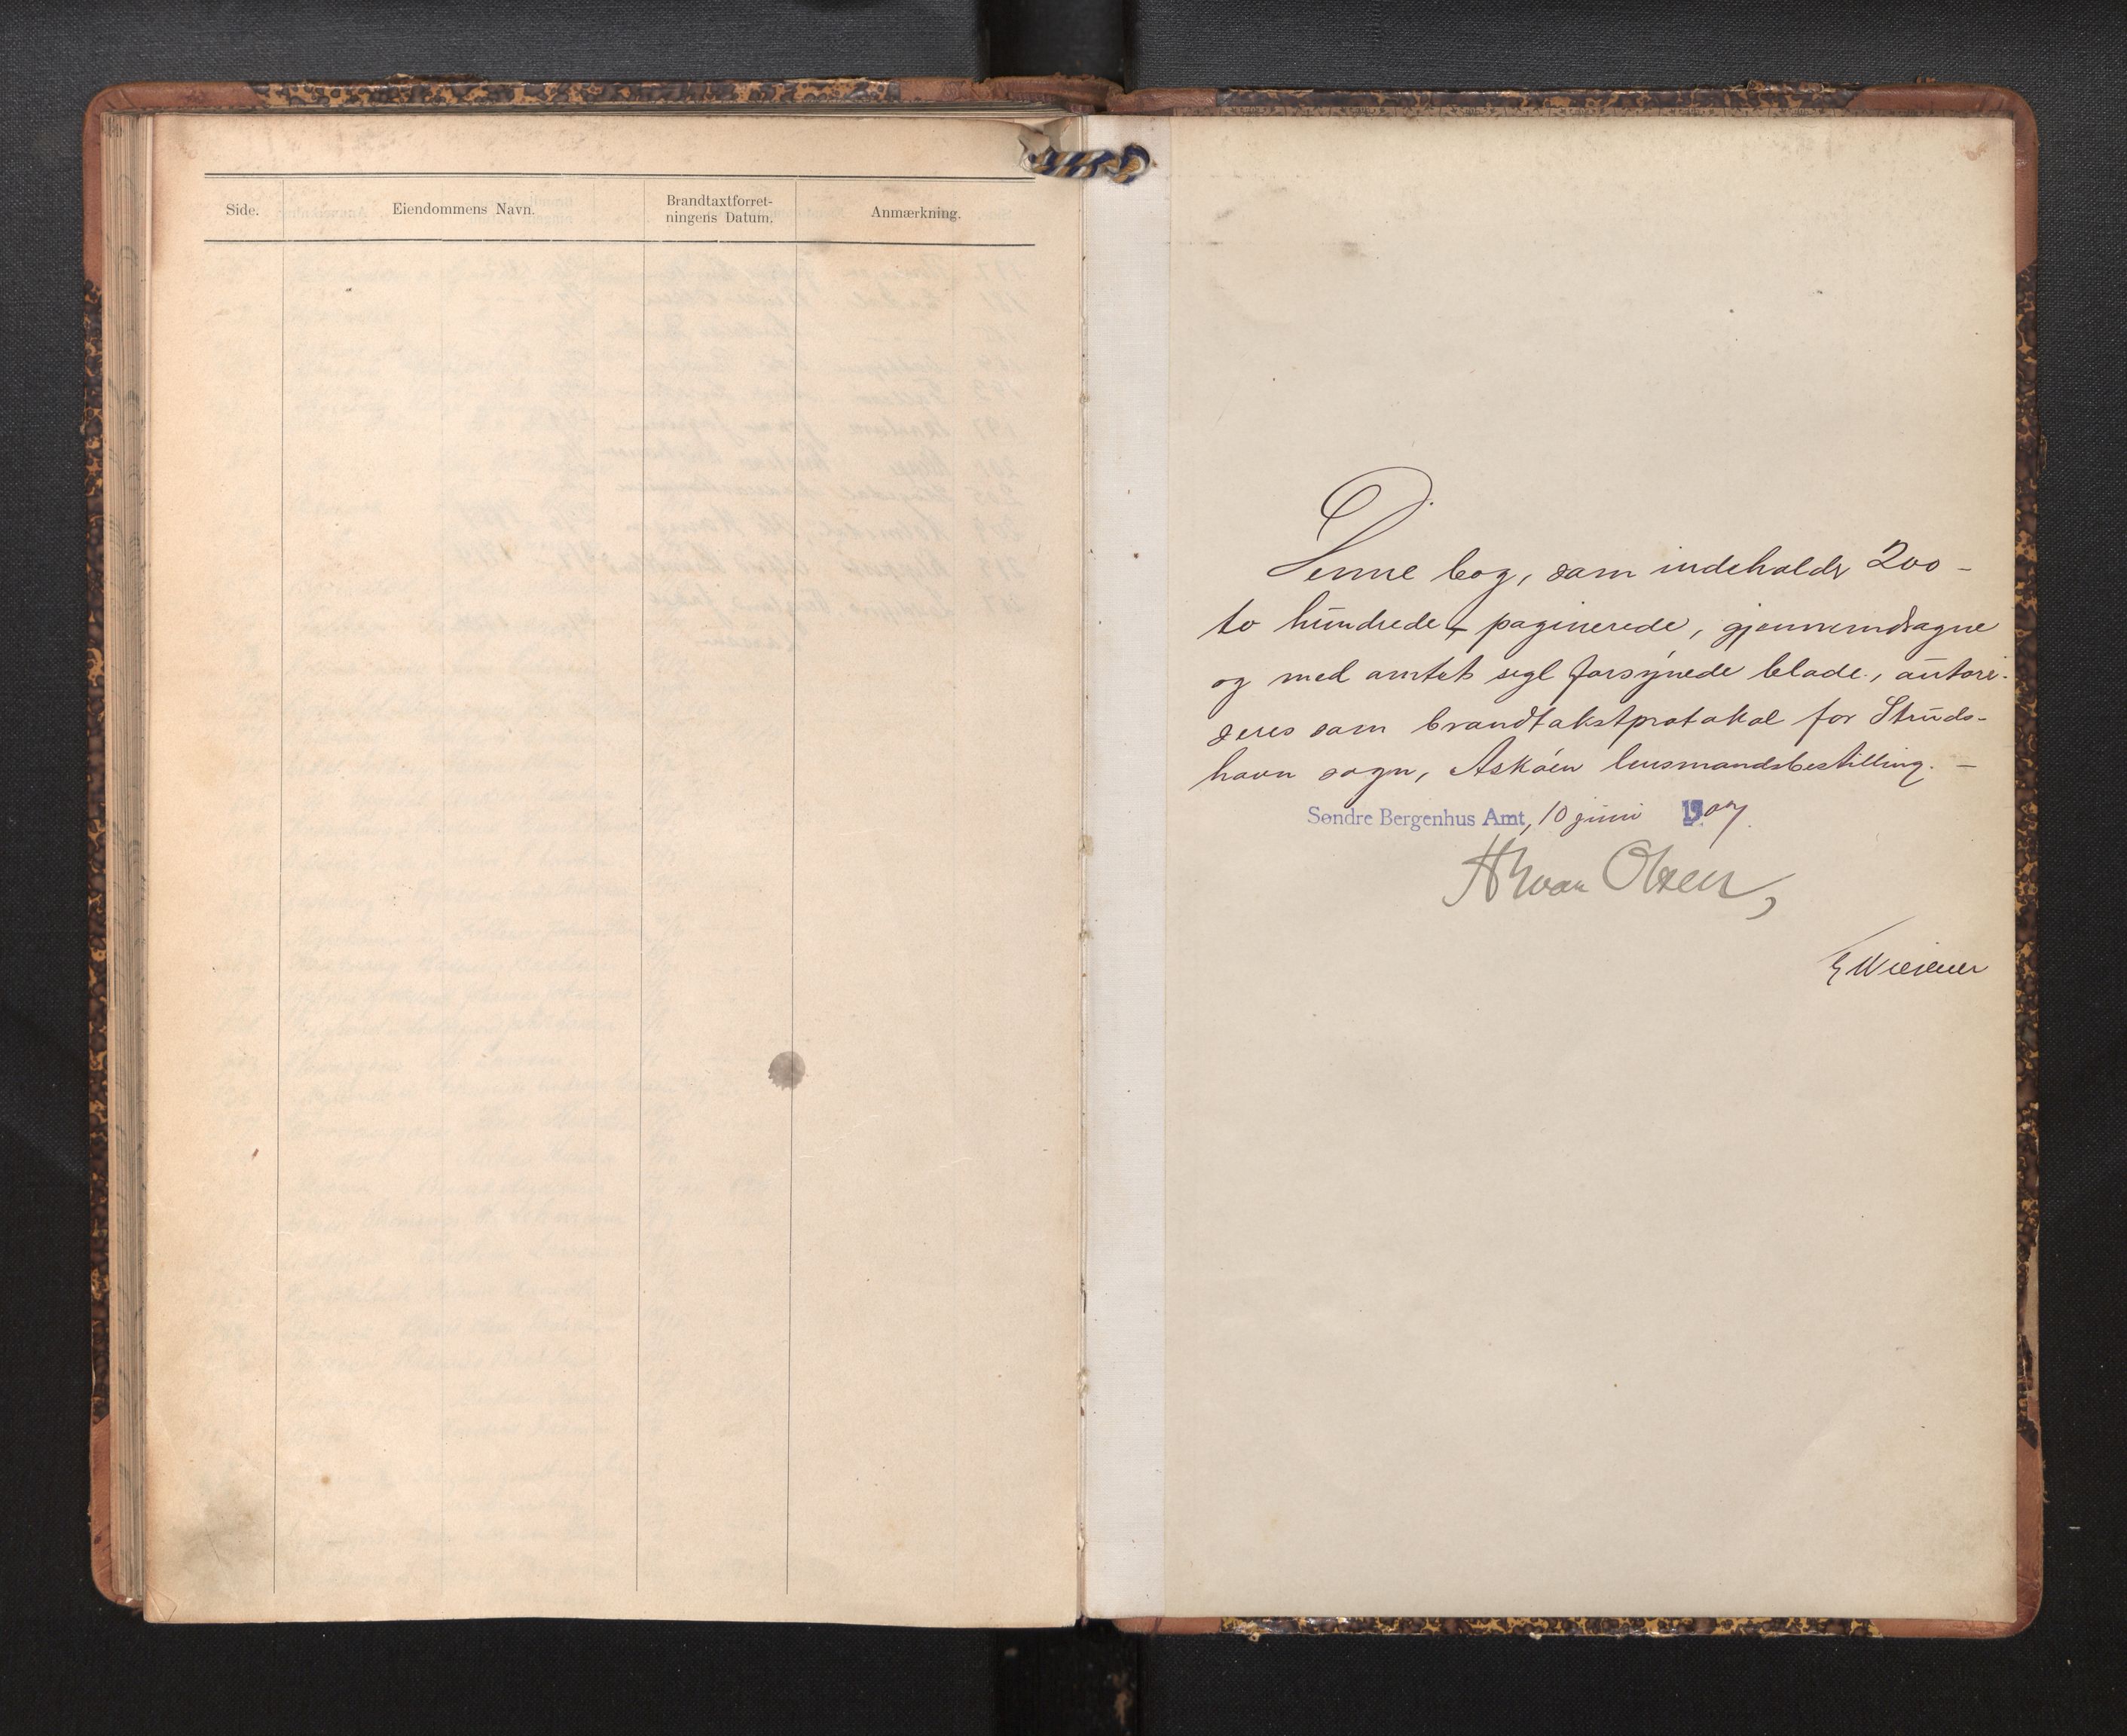 Side.
Eiendommens Navn.
Brandtaxtforret-
ningens Datum.
Anmærkning.
Denne bog, som indeholdr 200 -
to hundrede - paginerede, gjennemdragne
og med amtets segl forsynede blade, autori-
seres som brandtakstprotokol for Struds-
havn sogn, Askøen lensmandsbestilling. -
Søndre Bergenhus Amt, 10 juni 1907.
Olsen,